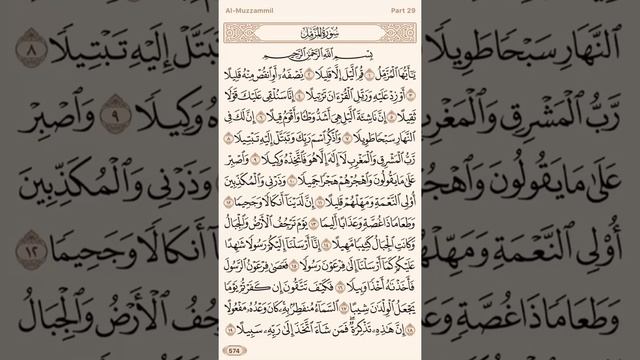 Al-Muzzammil Part 29
سُورَةُ المُزَّمِّلِ
بِسْمِ ٱللَّهِ ٱلرَّحْمَٰنِ ٱلرَّحِيمِ
يَٰٓأَيُّهَا ٱلْمُزَّمِّلُ ١ قُمِ ٱلَّيْلَ إِلَّا قَلِيلًا ٢ نِّصْفَهُۥٓ أَوِ ٱنقُصْ مِنْهُ قَلِيلًا
٣ أَوْ زِدْ عَلَيْهِ وَرَتِّلِ ٱلْقُرْءَانَ تَرْتِيلًا ٤ إِنَّا سَنُلْقِى عَلَيْكَ قَوْلًا
ثَقِيلًا ٥ إِنَّ نَاشِئَةَ ٱلَّيْلِ هِىَ أَشَدُّ وَطْـًٔا وَأَقْوَمُ قِيلًا ٦ إِنَّ لَكَ فِى
ٱلنَّهَارِ سَبْحًا طَوِيلًا ٧ وَٱذْكُرِ ٱسْمَ رَبِّكَ وَتَبَتَّلْ إِلَيْهِ تَبْتِيلًا ٨
رَّبُّ ٱلْمَشْرِقِ وَٱلْمَغْرِبِ لَآ إِلَٰهَ إِلَّا هُوَ فَٱتَّخِذْهُ وَكِيلًا ٩ وَٱصْبِرْ
عَلَىٰ مَا يَقُولُونَ وَٱهْجُرْهُمْ هَجْرًا جَمِيلًا ١٠ وَذَرْنِى وَٱلْمُكَذِّبِينَ
أُو۟لِى ٱلنَّعْمَةِ وَمَهِّلْهُمْ قَلِيلًا ١١ إِنَّ لَدَيْنَآ أَنكَالًا وَجَحِيمًا ١٢
وَطَعَامًا ذَا غُصَّةٍ وَعَذَابًا أَلِيمًا ١٣ يَوْمَ تَرْجُفُ ٱلْأَرْضُ وَٱلْجِبَالُ
وَكَانَتِ ٱلْجِبَالُ كَثِيبًا مَّهِيلًا ١٤ إِنَّآ أَرْسَلْنَآ إِلَيْكُمْ رَسُولًا شَٰهِدًا
عَلَيْكُمْ كَمَآ أَرْسَلْنَآ إِلَىٰ فِرْعَوْنَ رَسُولًا ١٥ فَعَصَىٰ فِرْعَوْنُ ٱلرَّسُولَ
فَأَخَذْنَٰهُ أَخْذًا وَبِيلًا ١٦ فَكَيْفَ تَتَّقُونَ إِن كَفَرْتُمْ يَوْمًا
يَجْعَلُ ٱلْوِلْدَٰنَ شِيبًا ١٧ ٱلسَّمَآءُ مُنفَطِرٌۢ بِهِۦ كَانَ وَعْدُهُۥ مَفْعُولًا
١٨ إِنَّ هَٰذِهِۦ تَذْكِرَةٌ فَمَن شَآءَ ٱتَّخَذَ إِلَىٰ رَبِّهِۦ سَبِيلًا ١٩
574